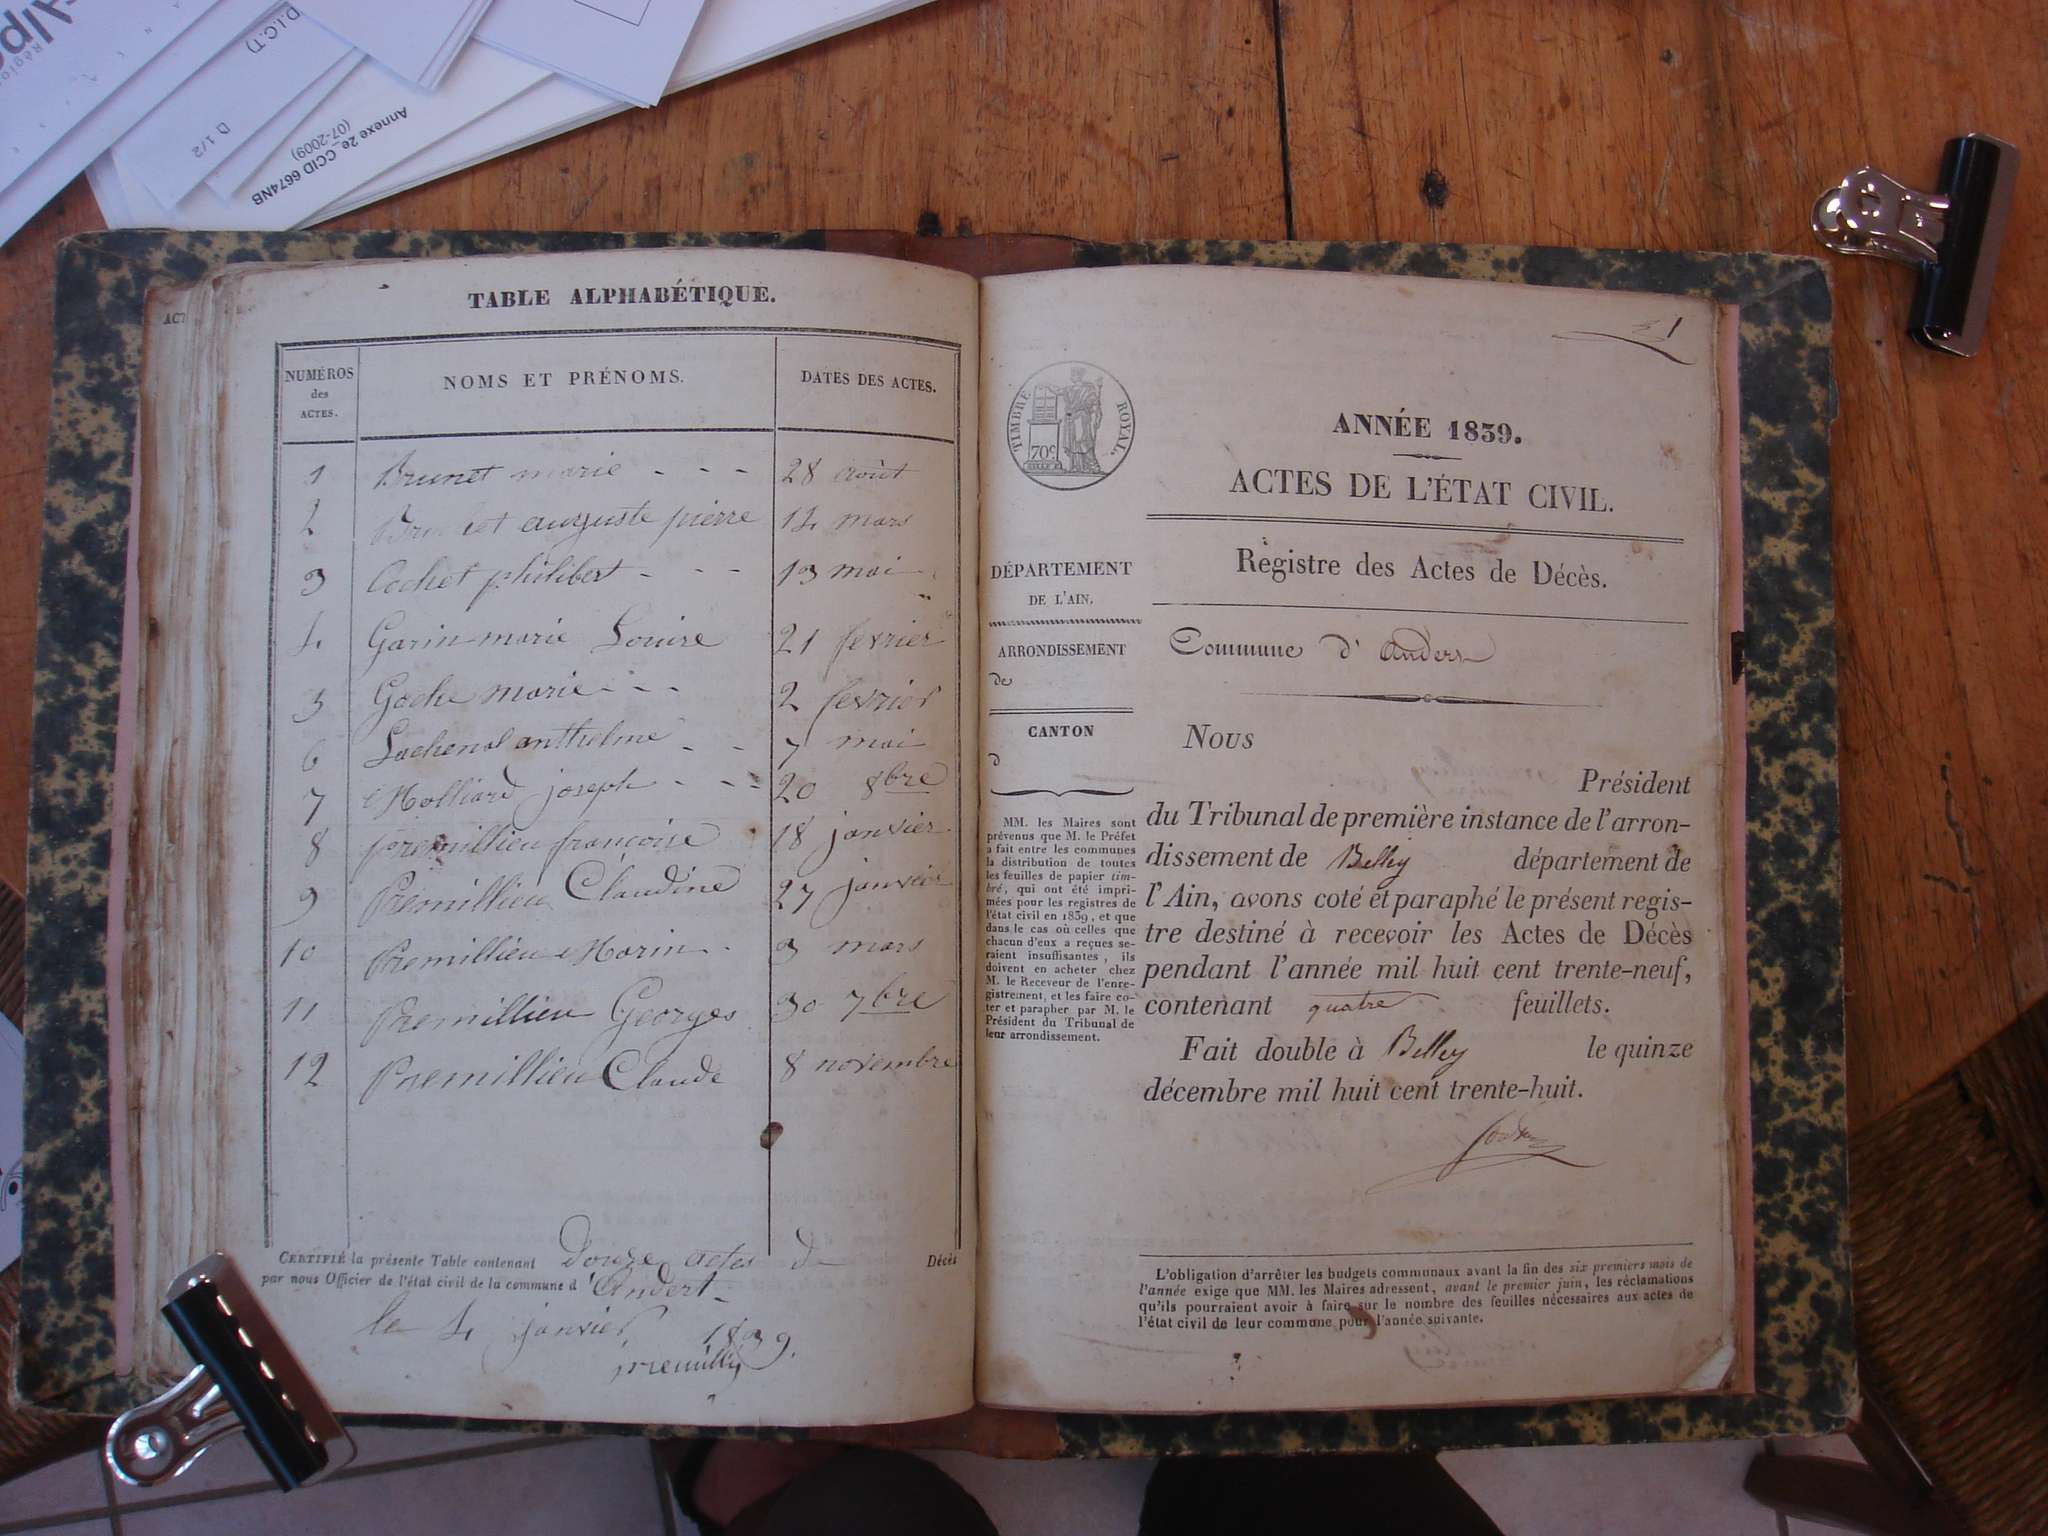 Alpe
Régio
D.I.C.T)
D 1/2
Annexe 2e_CCID 6674NB
(07-2009)
ACT
TABLE ALPHABÉTIQUE.
NUMÉROS des ACTES. NOMS ET PRÉNOMS. DATES DES ACTES.
1 Brunet marie - - - 28 août
2 auguste pierre 14 mars
3 Cochet philibert - - - 13 mai
4 Garin marie Louise 21 fevrier
5 Goche marie - - - 2 fevrier
6 Lachenal anthelme - - 7 mai
7 Molliard joseph - - - 20 8bre
8 premillieu françoise 18 janvier
9 Premillieu Claudine 27 janvier
10 Premillieu Marin - 3 mars
11 Premillieu Georges 30 7bre
12 Premillieu Claude 8 novembre
CERTIFIÉ la présente Table contenant Douze actes de Décès
par nous Officier de l'état civil de la commune d'Andert
le 4 janvier 1839.
1
TIMBRE ROYAL.
70c
ANNÉE 1839.
ACTES DE L'ÉTAT CIVIL.
Registre des Actes de Décès.
DÉPARTEMENT
DE L'AIN.
ARRONDISSEMENT
de
CANTON
d
MM. les Maires sont
prévenus que M. le Préfet
a fait entre les communes
la distribution de toutes
les feuilles de papier tim-
bré, qui ont été impri-
mées pour les registres de
l'état civil en 1839, et que
dans le cas où celles que
chacun d'eux a reçues se-
raient insuffisantes, ils
doivent en acheter chez
M. le Receveur de l'enre-
gistrement, et les faire co-
ter et parapher par M. le
Président du Tribunal de
leur arrondissement.
Commune d'Andert
Nous
Président
du Tribunal de première instance de l'arron-
dissement de Belley département de
l'Ain, avons coté et paraphé le présent regis-
tre destiné à recevoir les Actes de Décès
pendant l'année mil huit cent trente-neuf,
contenant quatre feuillets.
Fait double à Belley le quinze
décembre mil huit cent trente-huit.
L'obligation d'arrêter les budgets communaux avant la fin des six premiers mois de
l'année exige que MM. les Maires adressent, avant le premier juin, les réclamations
qu'ils pourraient avoir à faire sur le nombre des feuilles nécessaires aux actes de
l'état civil de leur commune pour l'année suivante.